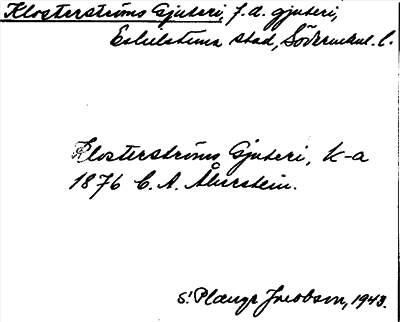 Klosterströms Gjuteri, f.d. gjuteri,
Eskilstuna stad, Södermanl. l.
Klosterströms Gjuteri, k-a
1876 C. A. Åkerstein.
S: Plænge Jacobson, 1943.